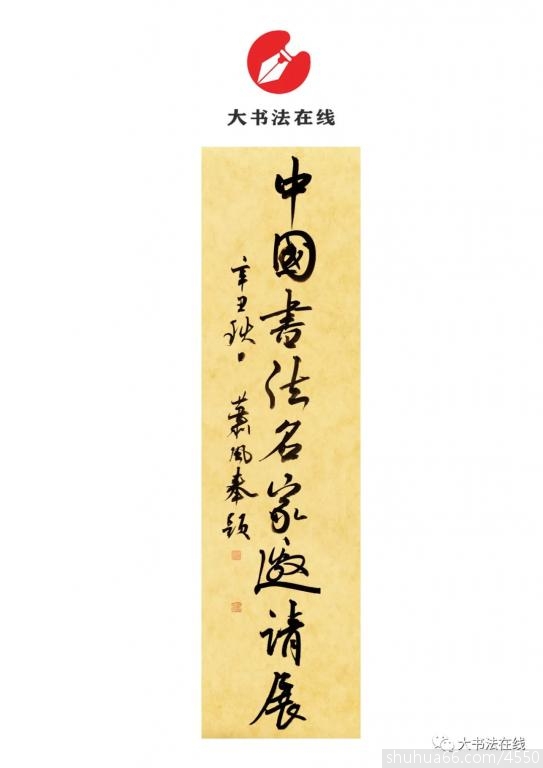 大书法在线
中國書法名家邀请展
辛丑秋日 萧風奉题
大书法在线
shuhua66.com/4550